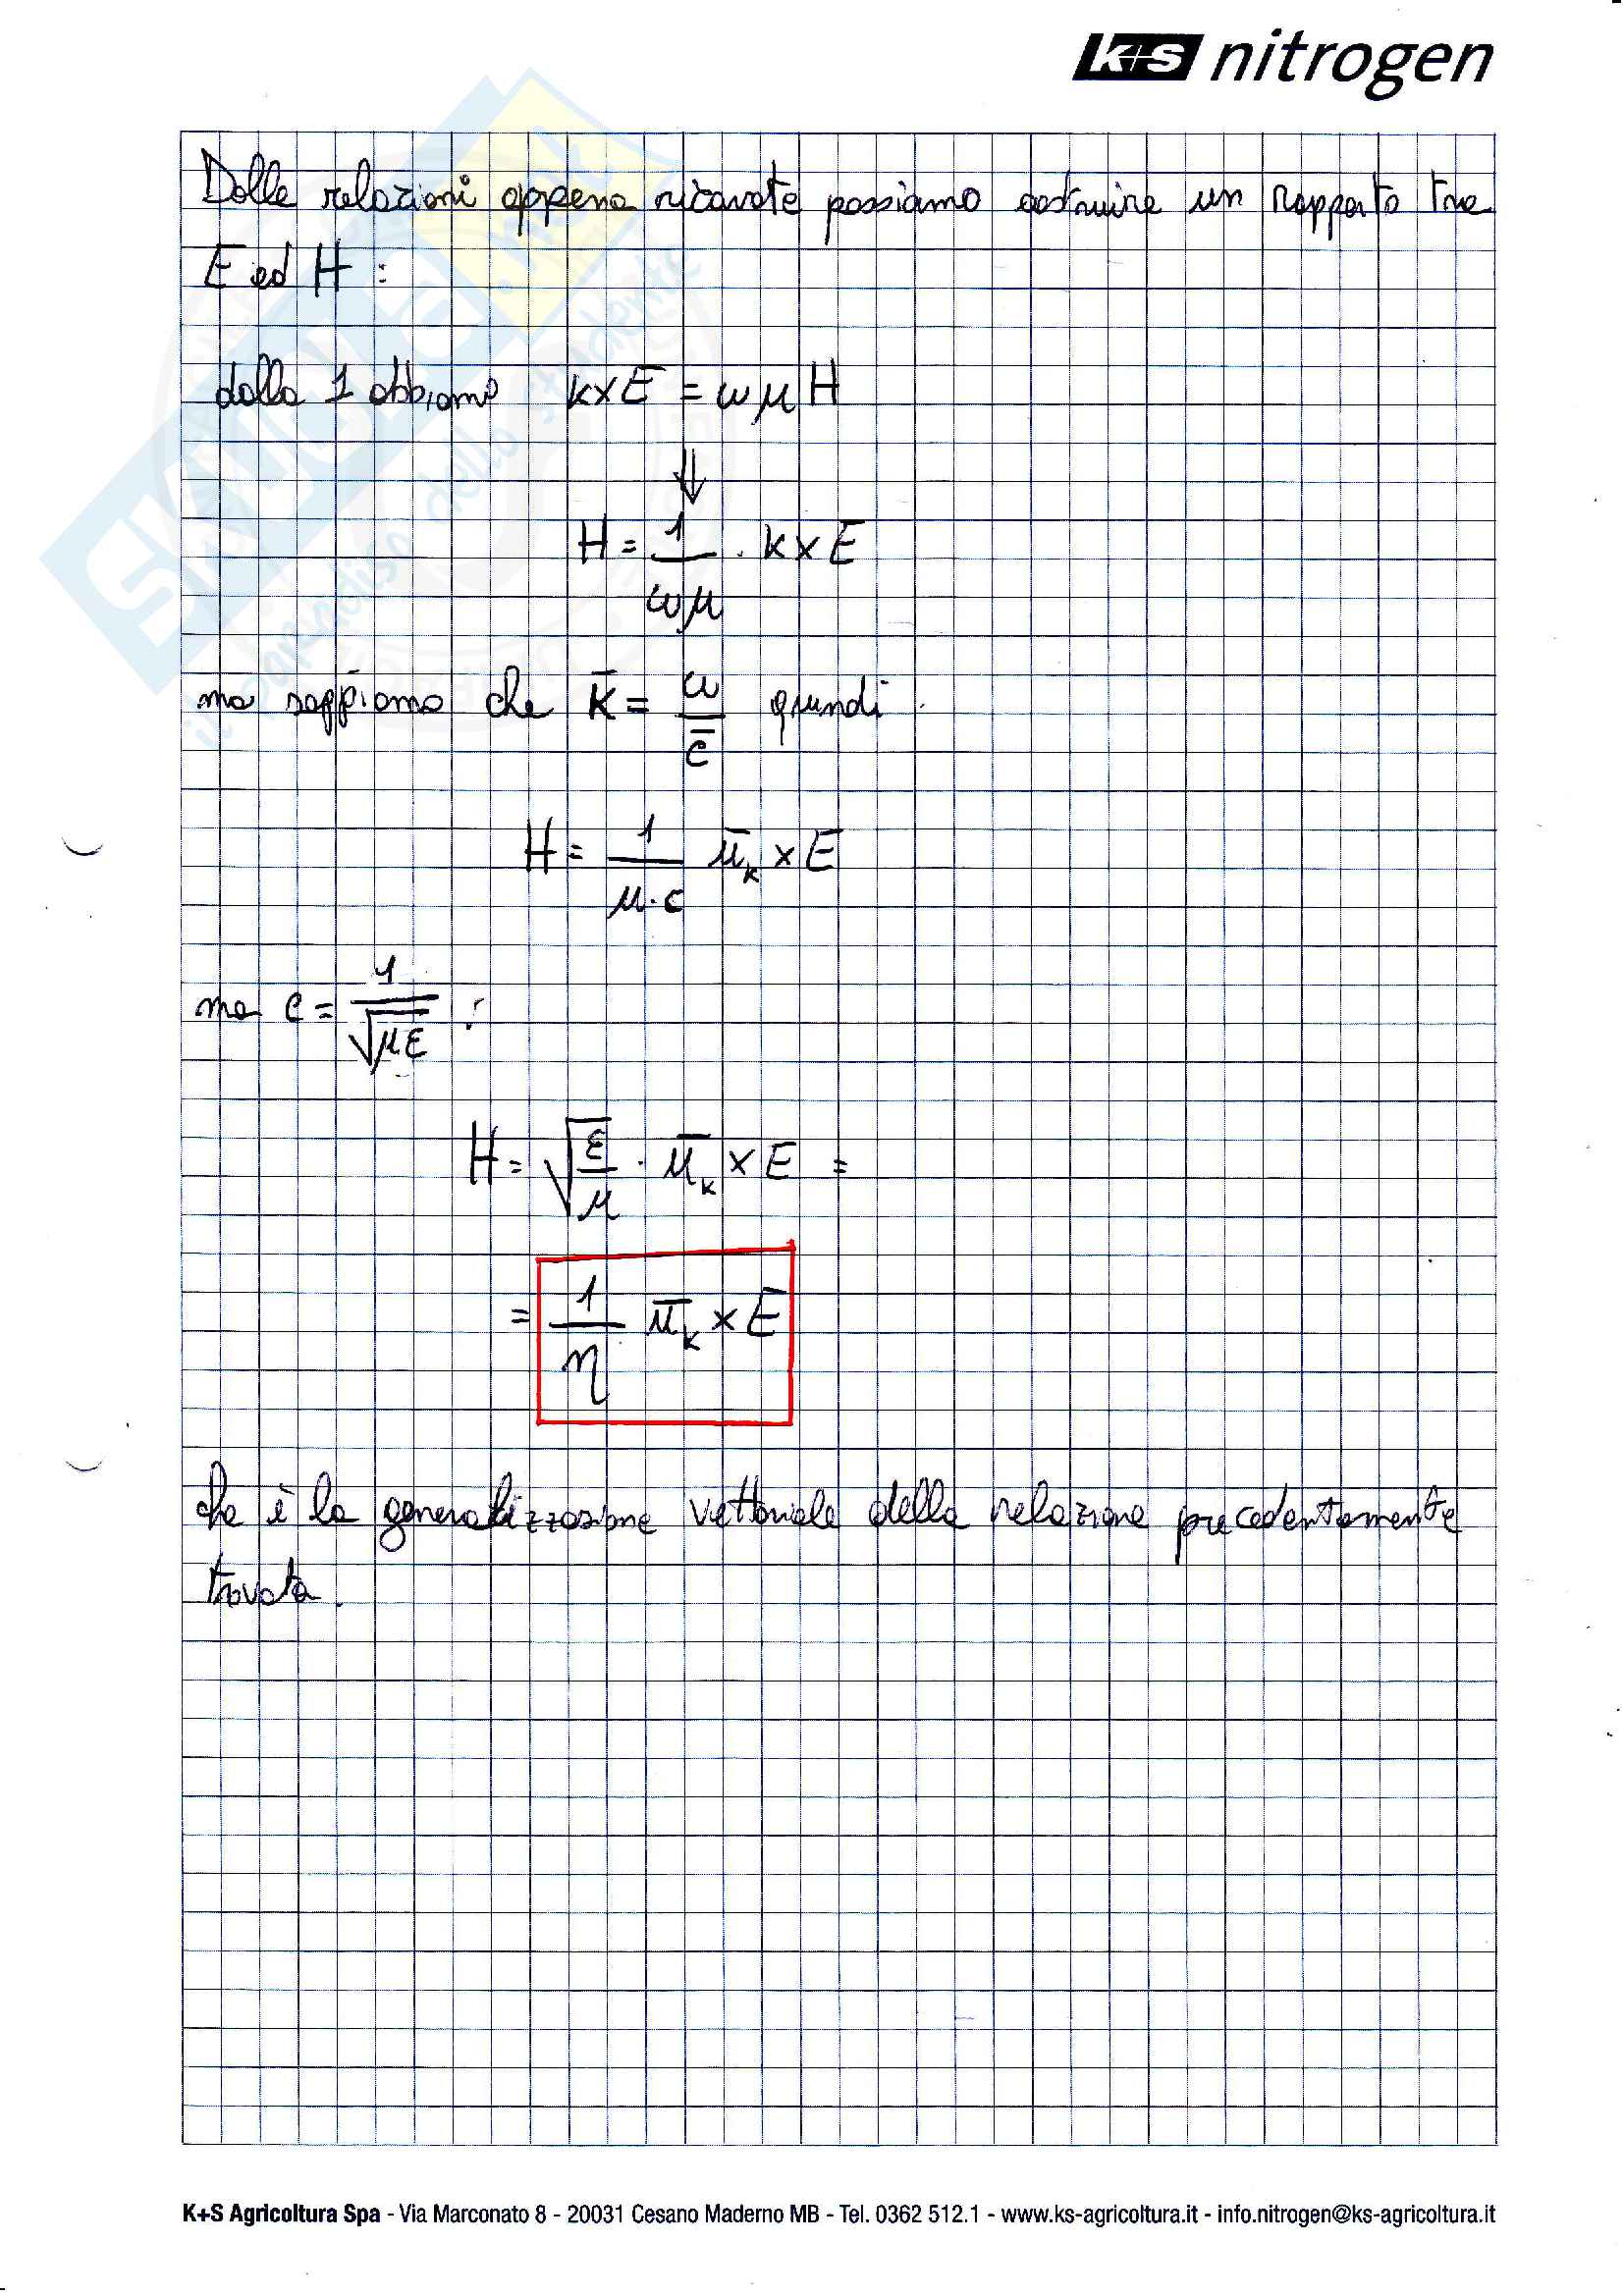 K+S nitrogen
Dalle relazioni appena ricavate possiamo costruire un rapporto tra
E ed H :
dalla 1 abbiamo k×E = ωμH
⇓
H = 1/ωμ · k×E
ma sappiamo che k̄ = ω/c̄ quindi
H = 1/μ·c ū_k × E
ma c = 1/√με :
H = √ε/μ · ū_k × E =
= 1/η ū_k × E
che è la generalizzazione vettoriale della relazione precedentemente
trovata.
SKUOLA.net
il paradiso dello studente
K+S Agricoltura Spa - Via Marconato 8 - 20031 Cesano Maderno MB - Tel. 0362 512.1 - www.ks-agricoltura.it - info.nitrogen@ks-agricoltura.it